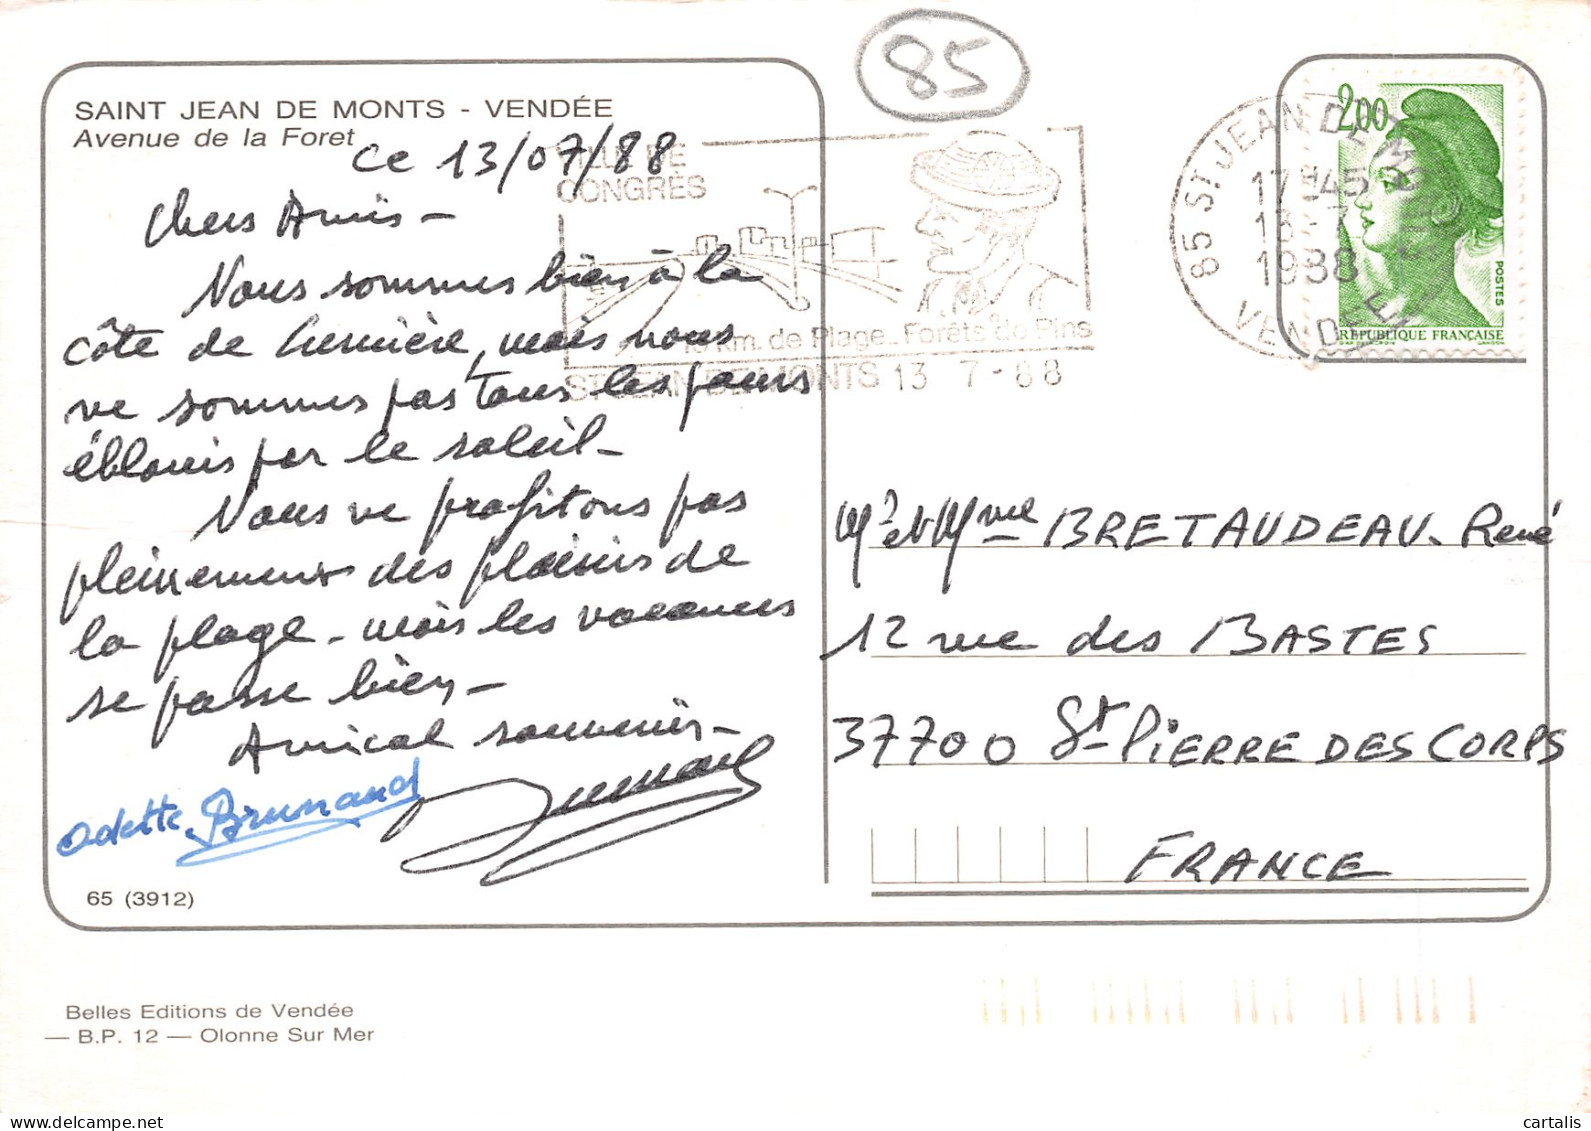 85
SAINT JEAN DE MONTS - VENDÉE
Avenue de la Foret
ce 13/07/88
Chers Amis -
Nous sommes bien à la
côte de Lumière, mais nous
ne sommes pas tous les jours
éblouis par le soleil -
Nous ne profitons pas
pleinement des plaisirs de
la plage - mais les vacances
se passe bien -
Amical souvenir -
Odette
65 (3912)
Belles Editions de Vendée
— B.P. 12 — Olonne Sur Mer
VILLE DE
CONGRÈS
km. de Plage - Forêts de Pins
ST JEAN DE MONTS 13 7 - 88
85 ST JEAN DE MONTS
17H45
13 - 7
1988
VENDEE
2,00
POSTES
REPUBLIQUE FRANÇAISE
Mr et Mme BRETAUDEAU. René
12 rue des BASTES
37700 St-PIERRE DES CORPS
FRANCE
delcampe.net
cartalis